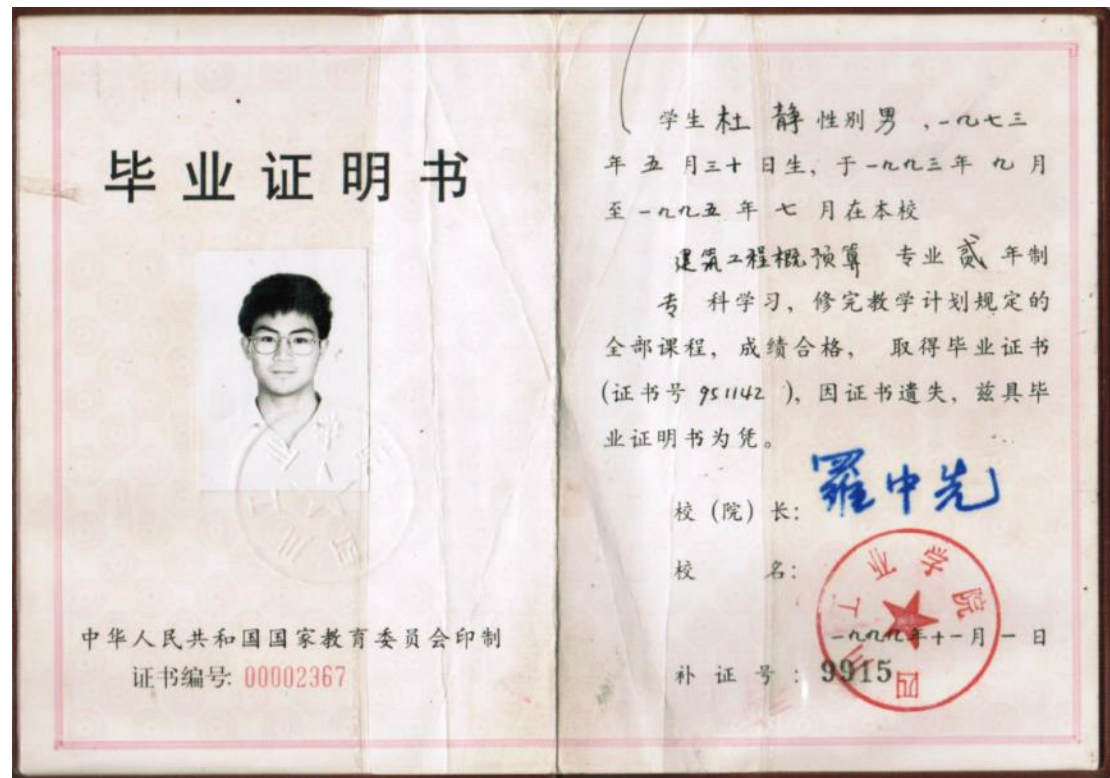 毕业证明书
中华人民共和国国家教育委员会印制
证书编号: 00002367
学生 杜 静 性别 男 ,一九七三
年 五 月三十日生, 于一九九三年 九 月
至一九九五 年 七 月在本校
建筑工程概预算 专业 贰 年制
专 科学习, 修完教学计划规定的
全部课程, 成绩合格, 取得毕业证书
(证书号 951142 ), 因证书遗失, 兹具毕
业证明书为凭。
校 (院) 长: 罗中先
校 名:
四川工业学院
一九九九年十一月 一 日
补 证 号 : 9915